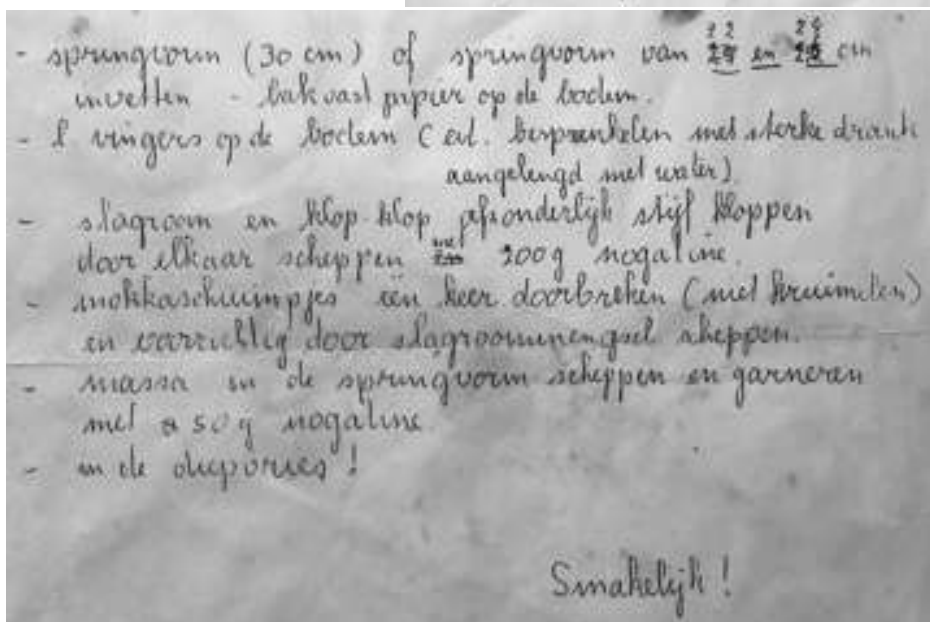 22 24
- springvorm (30 cm) of springvorm van en cm
invetten - bakvast papier op de bodem.
- l. vingers op de bodem (evt. besprenkelen met sterke drank
aangelengd met water)
- slagroom en klop-klop afzonderlijk stijf kloppen
door elkaar scheppen met 200 g nogatine.
- mokkaschuimpjes één keer doorbreken (niet kruimelen)
en voorzichtig door slagroommengsel scheppen.
- massa in de springvorm scheppen en garneren
met 50 g nogatine.
- in de diepvries!
Smakelijk!